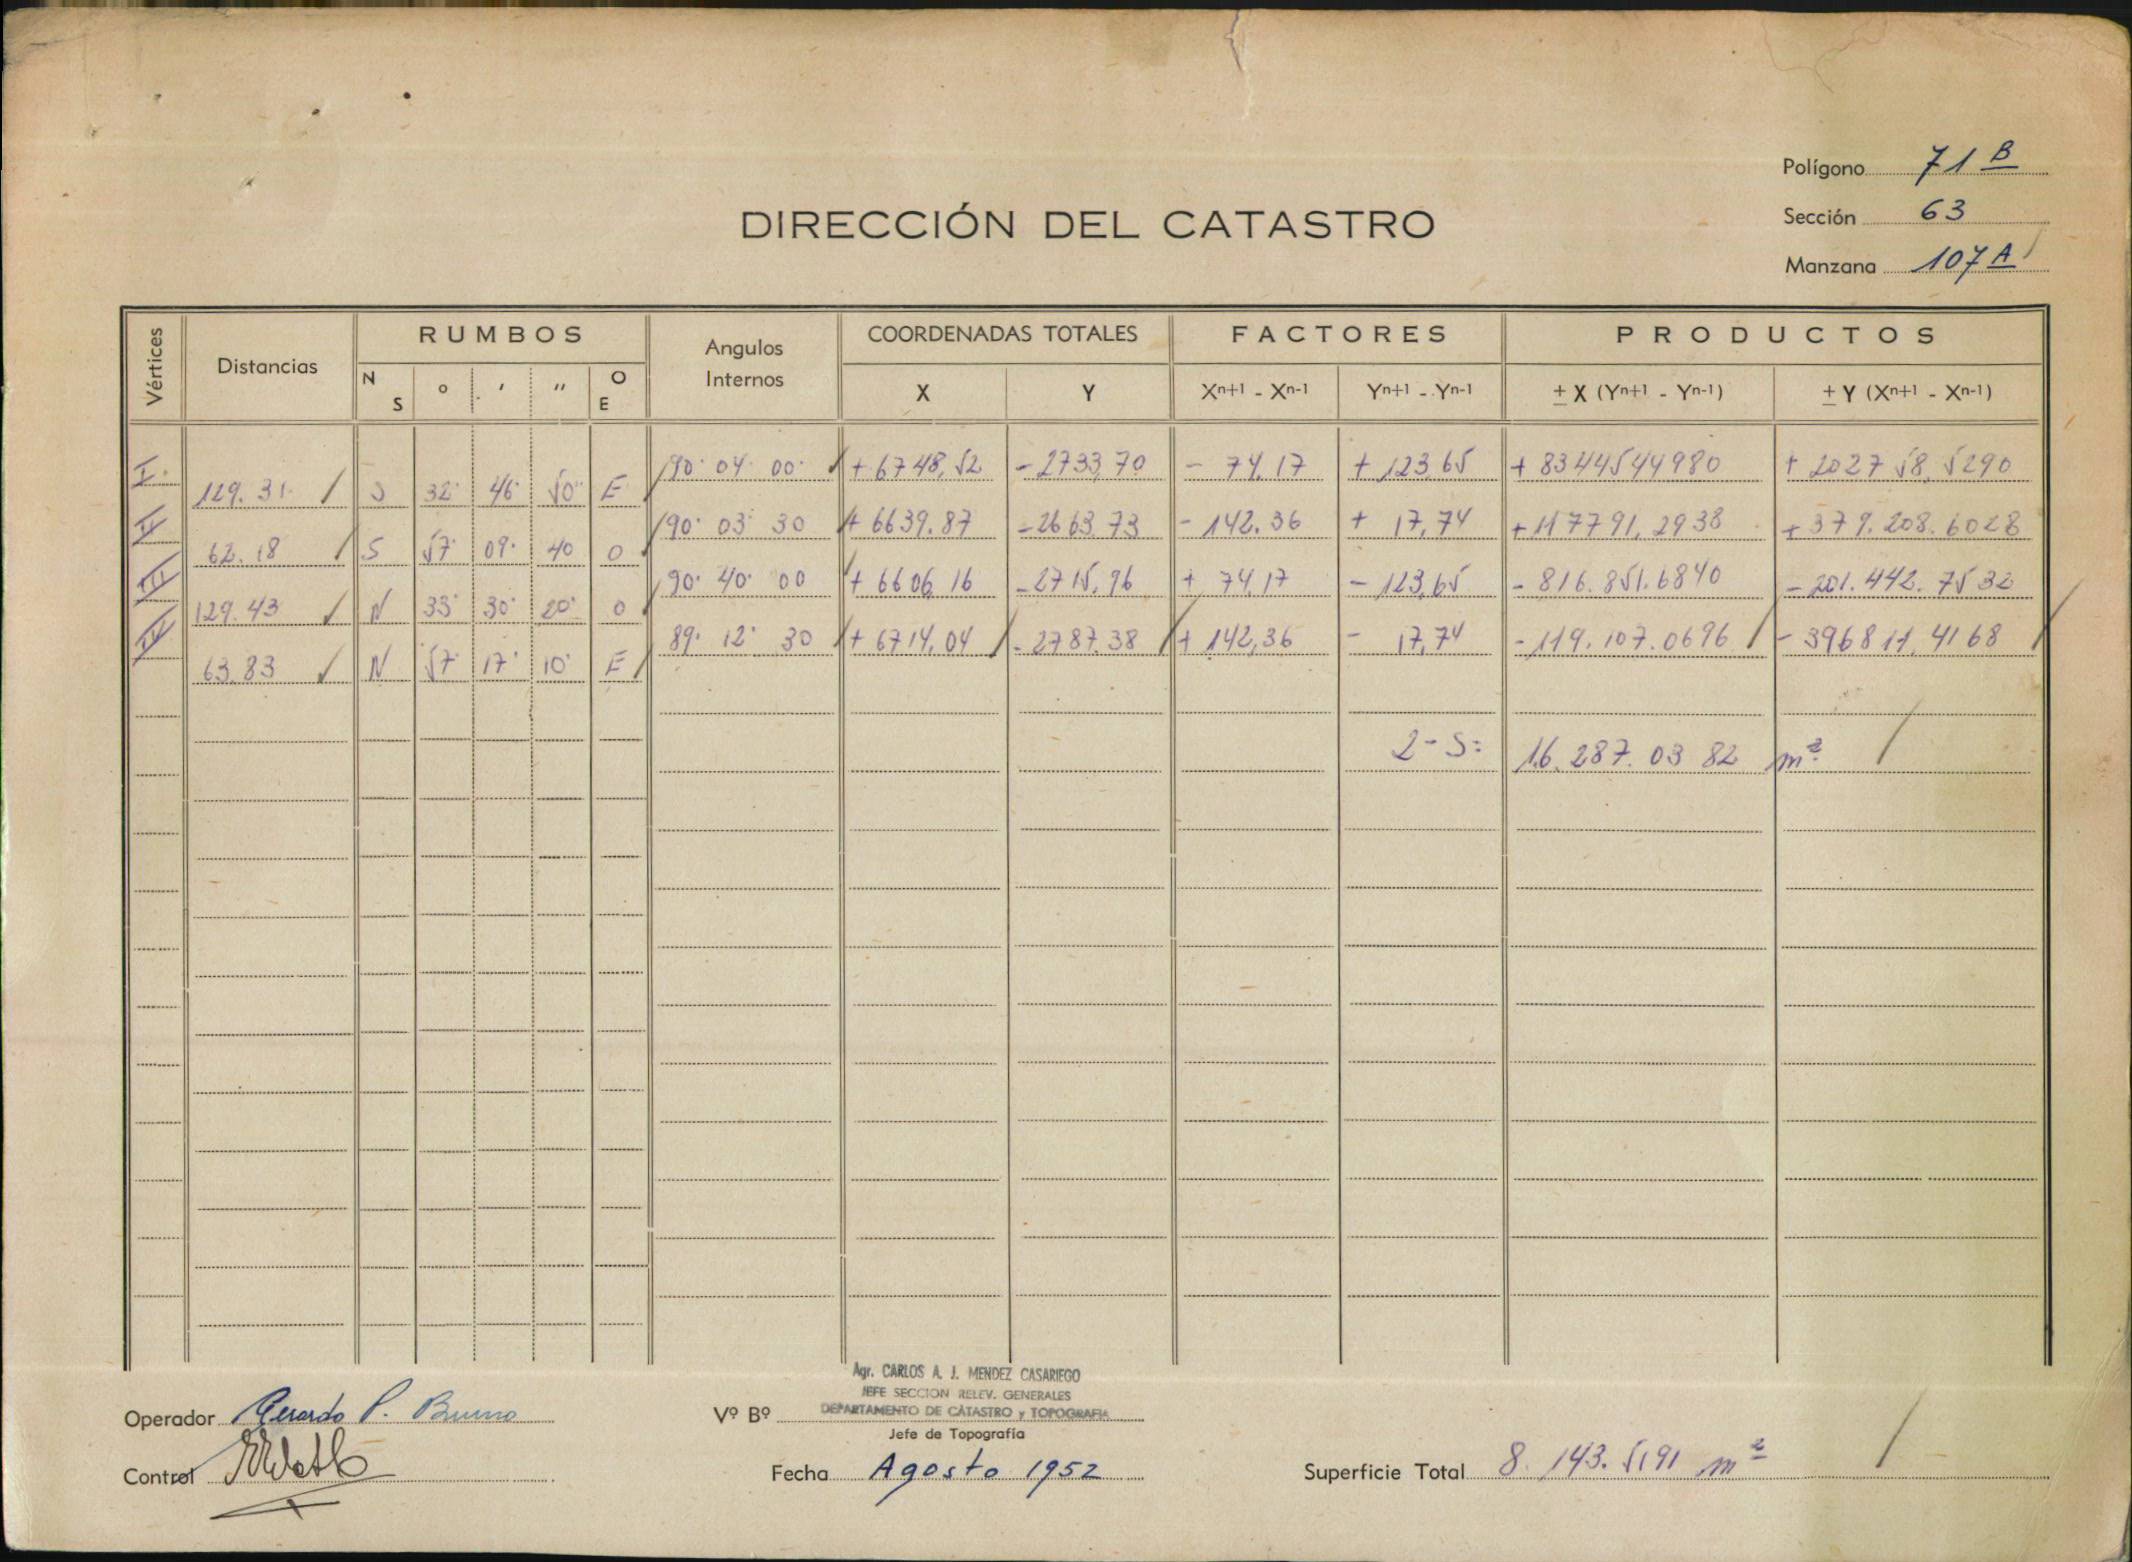 Polígono 71 B
Sección 63
Manzana 107 A
DIRECCIÓN DEL CATASTRO
Vértices Distancias RUMBOS Angulos Internos COORDENADAS TOTALES FACTORES PRODUCTOS
N S ° ' " O E X Y Xn+1 - Xn-1 Yn+1 - Yn-1 ± X (Yn+1 - Yn-1) ± Y (Xn+1 - Xn-1)
I 90° 04' 00" + 6748,52 - 2733,70 - 74,17 + 123,65 + 8344544980 + 202758,5290
129.31 S 32° 46' 50" E
II 90° 03' 30 + 6639.87 - 2663.73 - 142.36 + 17,74 + 117791,2938 + 379.208.6028
62.18 S 57° 09' 40 O
III 90° 40' 00 + 6606,16 - 2715,96 + 74,17 - 123,65 - 816.851.6840 - 201.442.7532
129.43 N 33° 30' 20" O
IV 89° 12' 30 + 6714,04 - 2787.38 + 142,36 - 17,74 - 119.107.0696 - 396811,4168
63.83 N 57° 17' 10" E
2-S= 16.287.03 82 m²
Agr. CARLOS A. J. MENDEZ CASARIEGO
JEFE SECCION RELEV. GENERALES
DEPARTAMENTO DE CATASTRO y TOPOGRAFIA
Operador Gerardo P. Bruno Vº Bº
Jefe de Topografía
Control Fecha Agosto 1952 Superficie Total 8.143.5191 m²